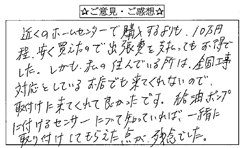 ☆ご意見・ご感想☆
近くのホームセンターで購入するよりも、10万円
程、安く買えたので出張費を支払ってもお得で
した。しかも、私の住んでいる所は、全国工事
対応としているお店でも来てくれないので、
取付けに来てくれて良かったです。給油ポンプ
に付けるセンサーについて知っていれば、一緒に
取り付けしてもらえた点が、残念でした。